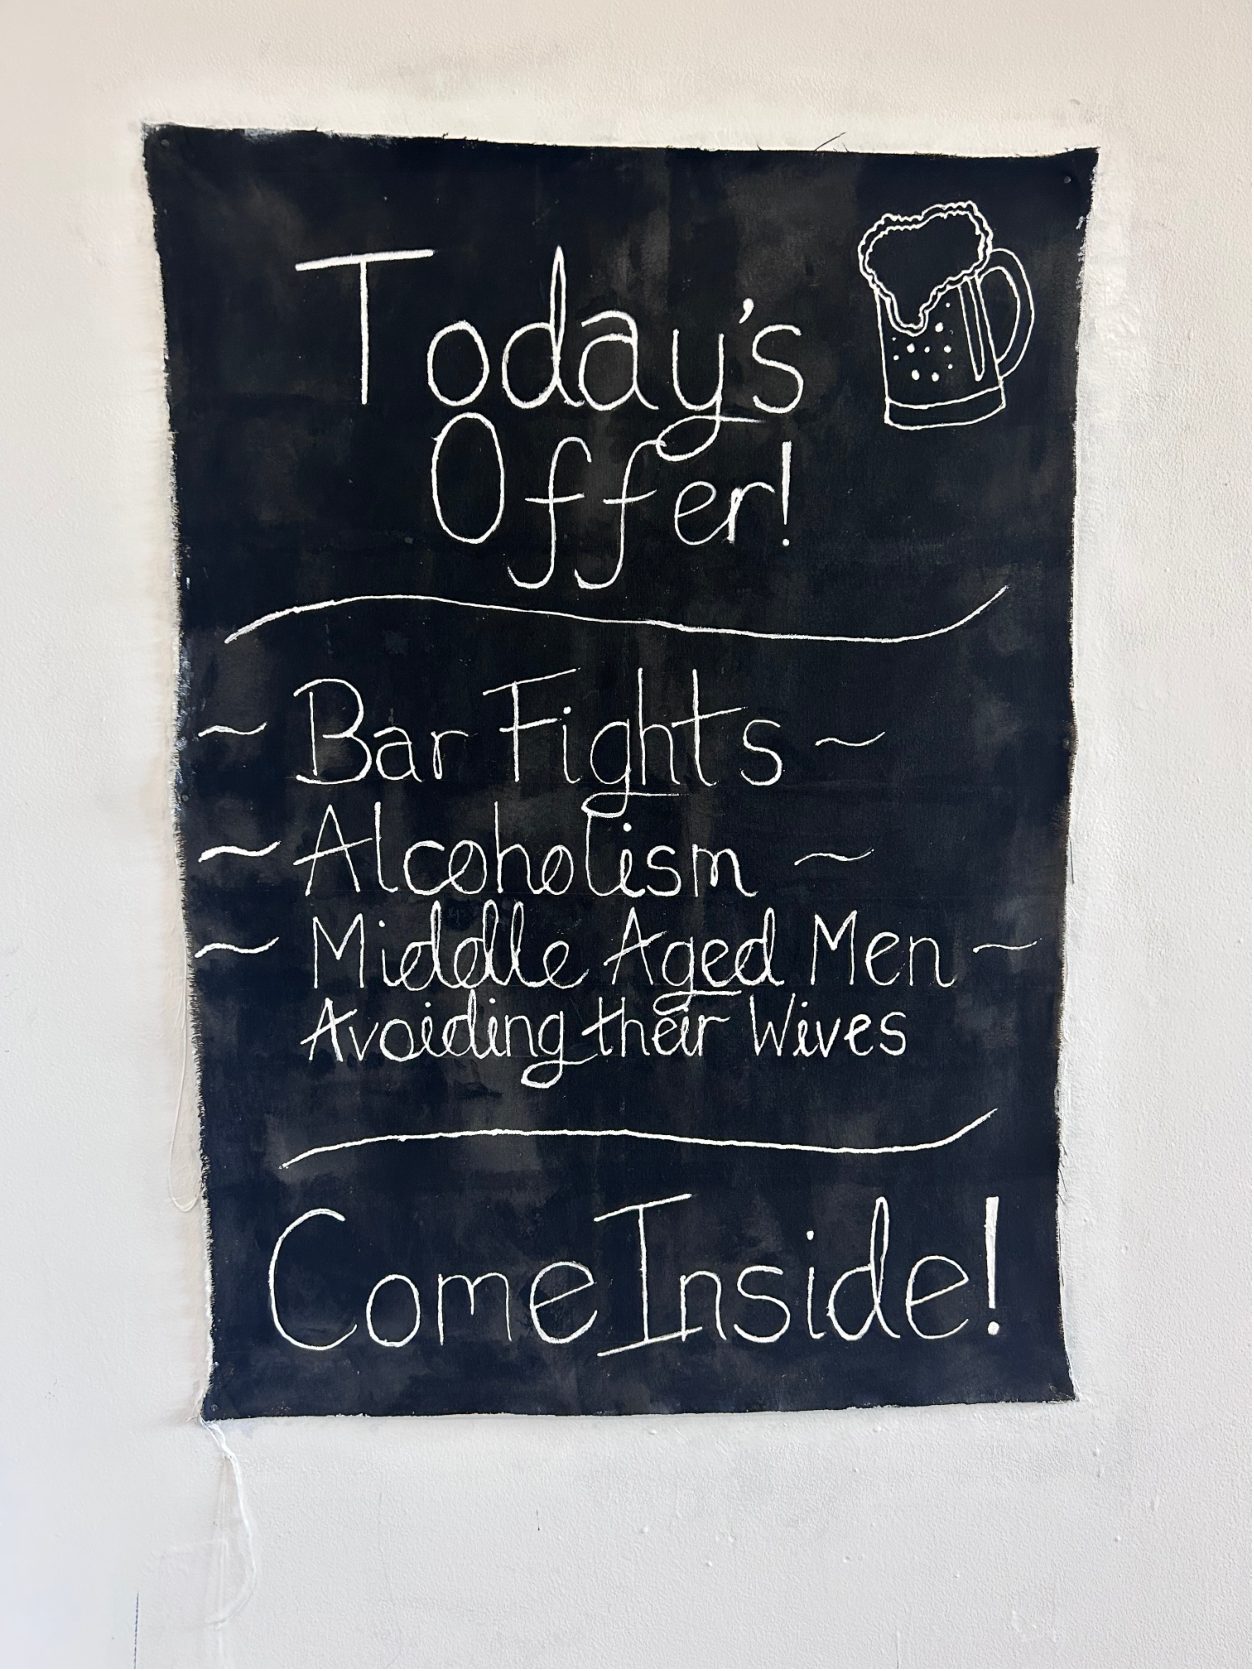 Today's
Offer!
~ Bar Fights ~
~ Alcoholism ~
~ Middle Aged Men ~
Avoiding their Wives
Come Inside!